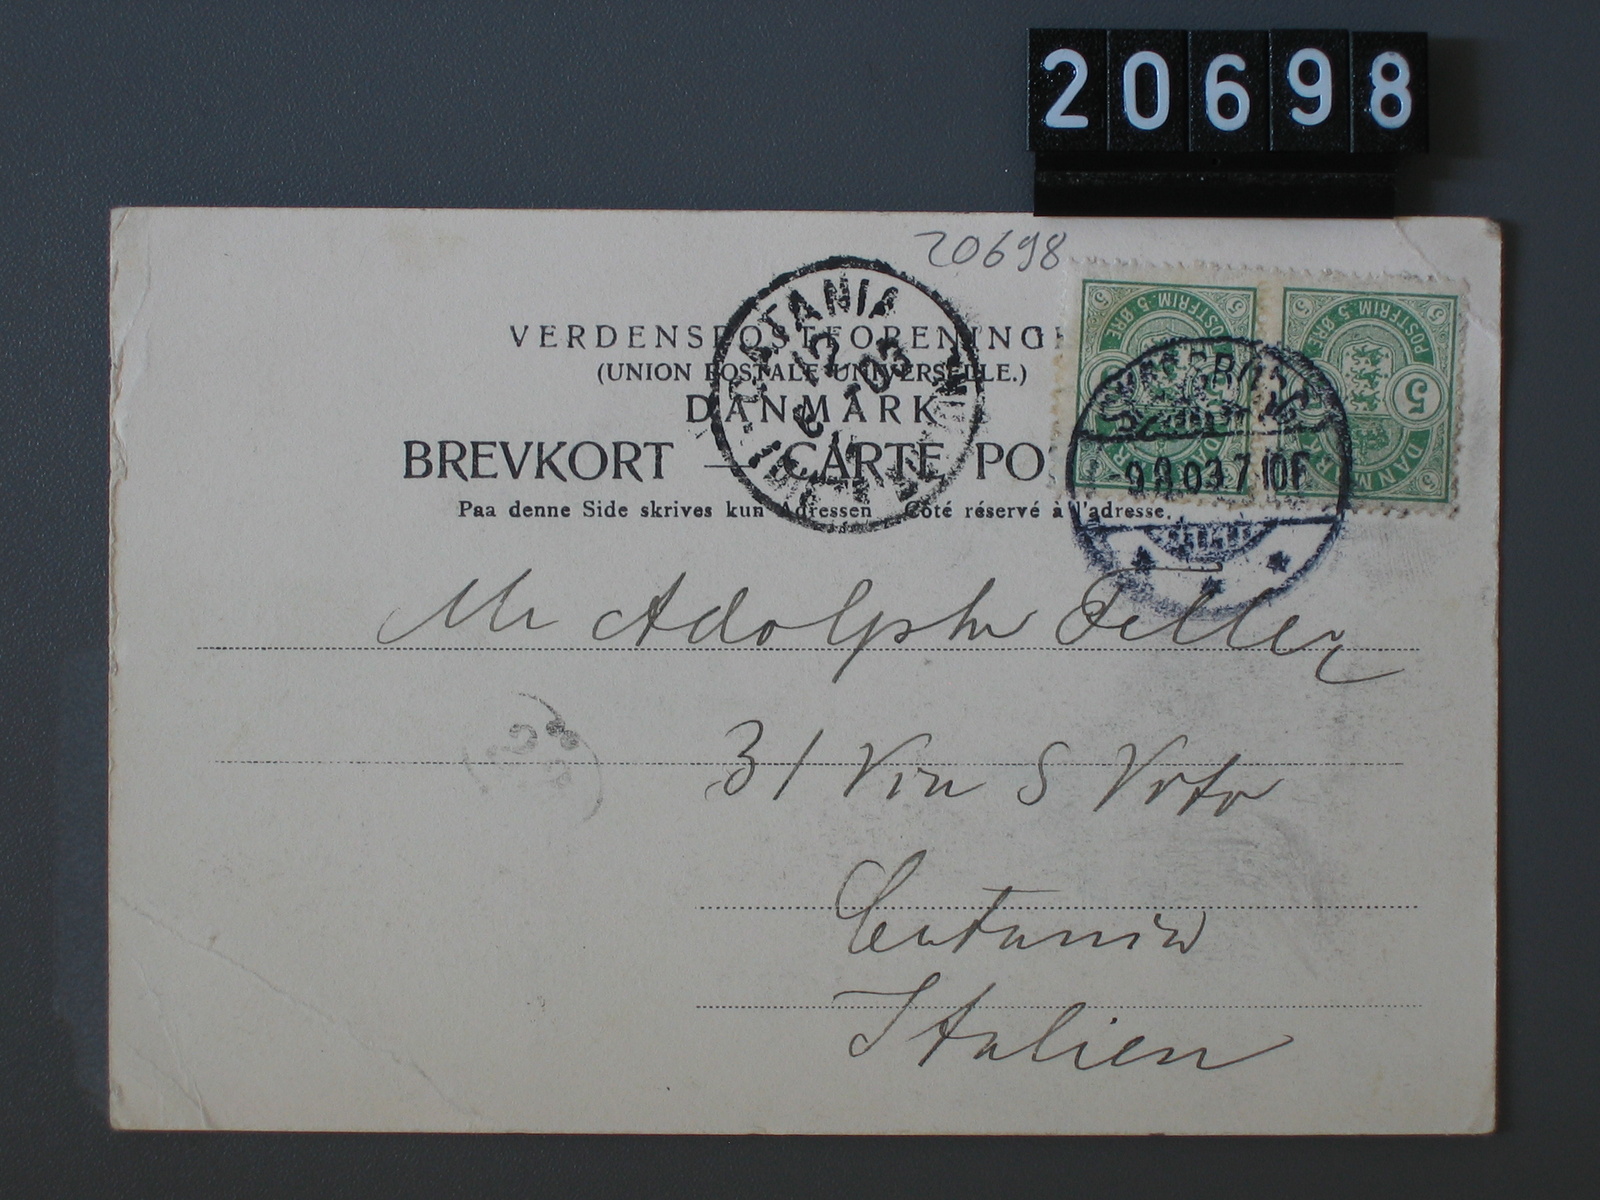 20698
20698
VERDENSPOSTFORENING
(UNION POSTALE UNIVERSELLE.)
DANMARK
BREVKORT — CARTE PO
Paa denne Side skrives kun Adressen Côté réservé à l'adresse.
CATANIA
12
03
POSTFRIM. 5 ØRE
5
DANMARK
POSTFRIM. 5 ØRE
5
DANMARK
9.9.03 7-10F
Mr Adolphe Feller
31 Via S Vito
Catania
Italien